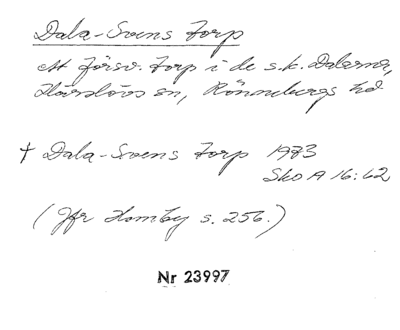 Dala-Svens Torp
ett försv. torp i de s.k. Dalarna,
Härslövs sn, Rönnebergs hd
† Dala-Svens Torp 1973
Sko A 16:62
(Jfr Homby s. 256.)
Nr 23997